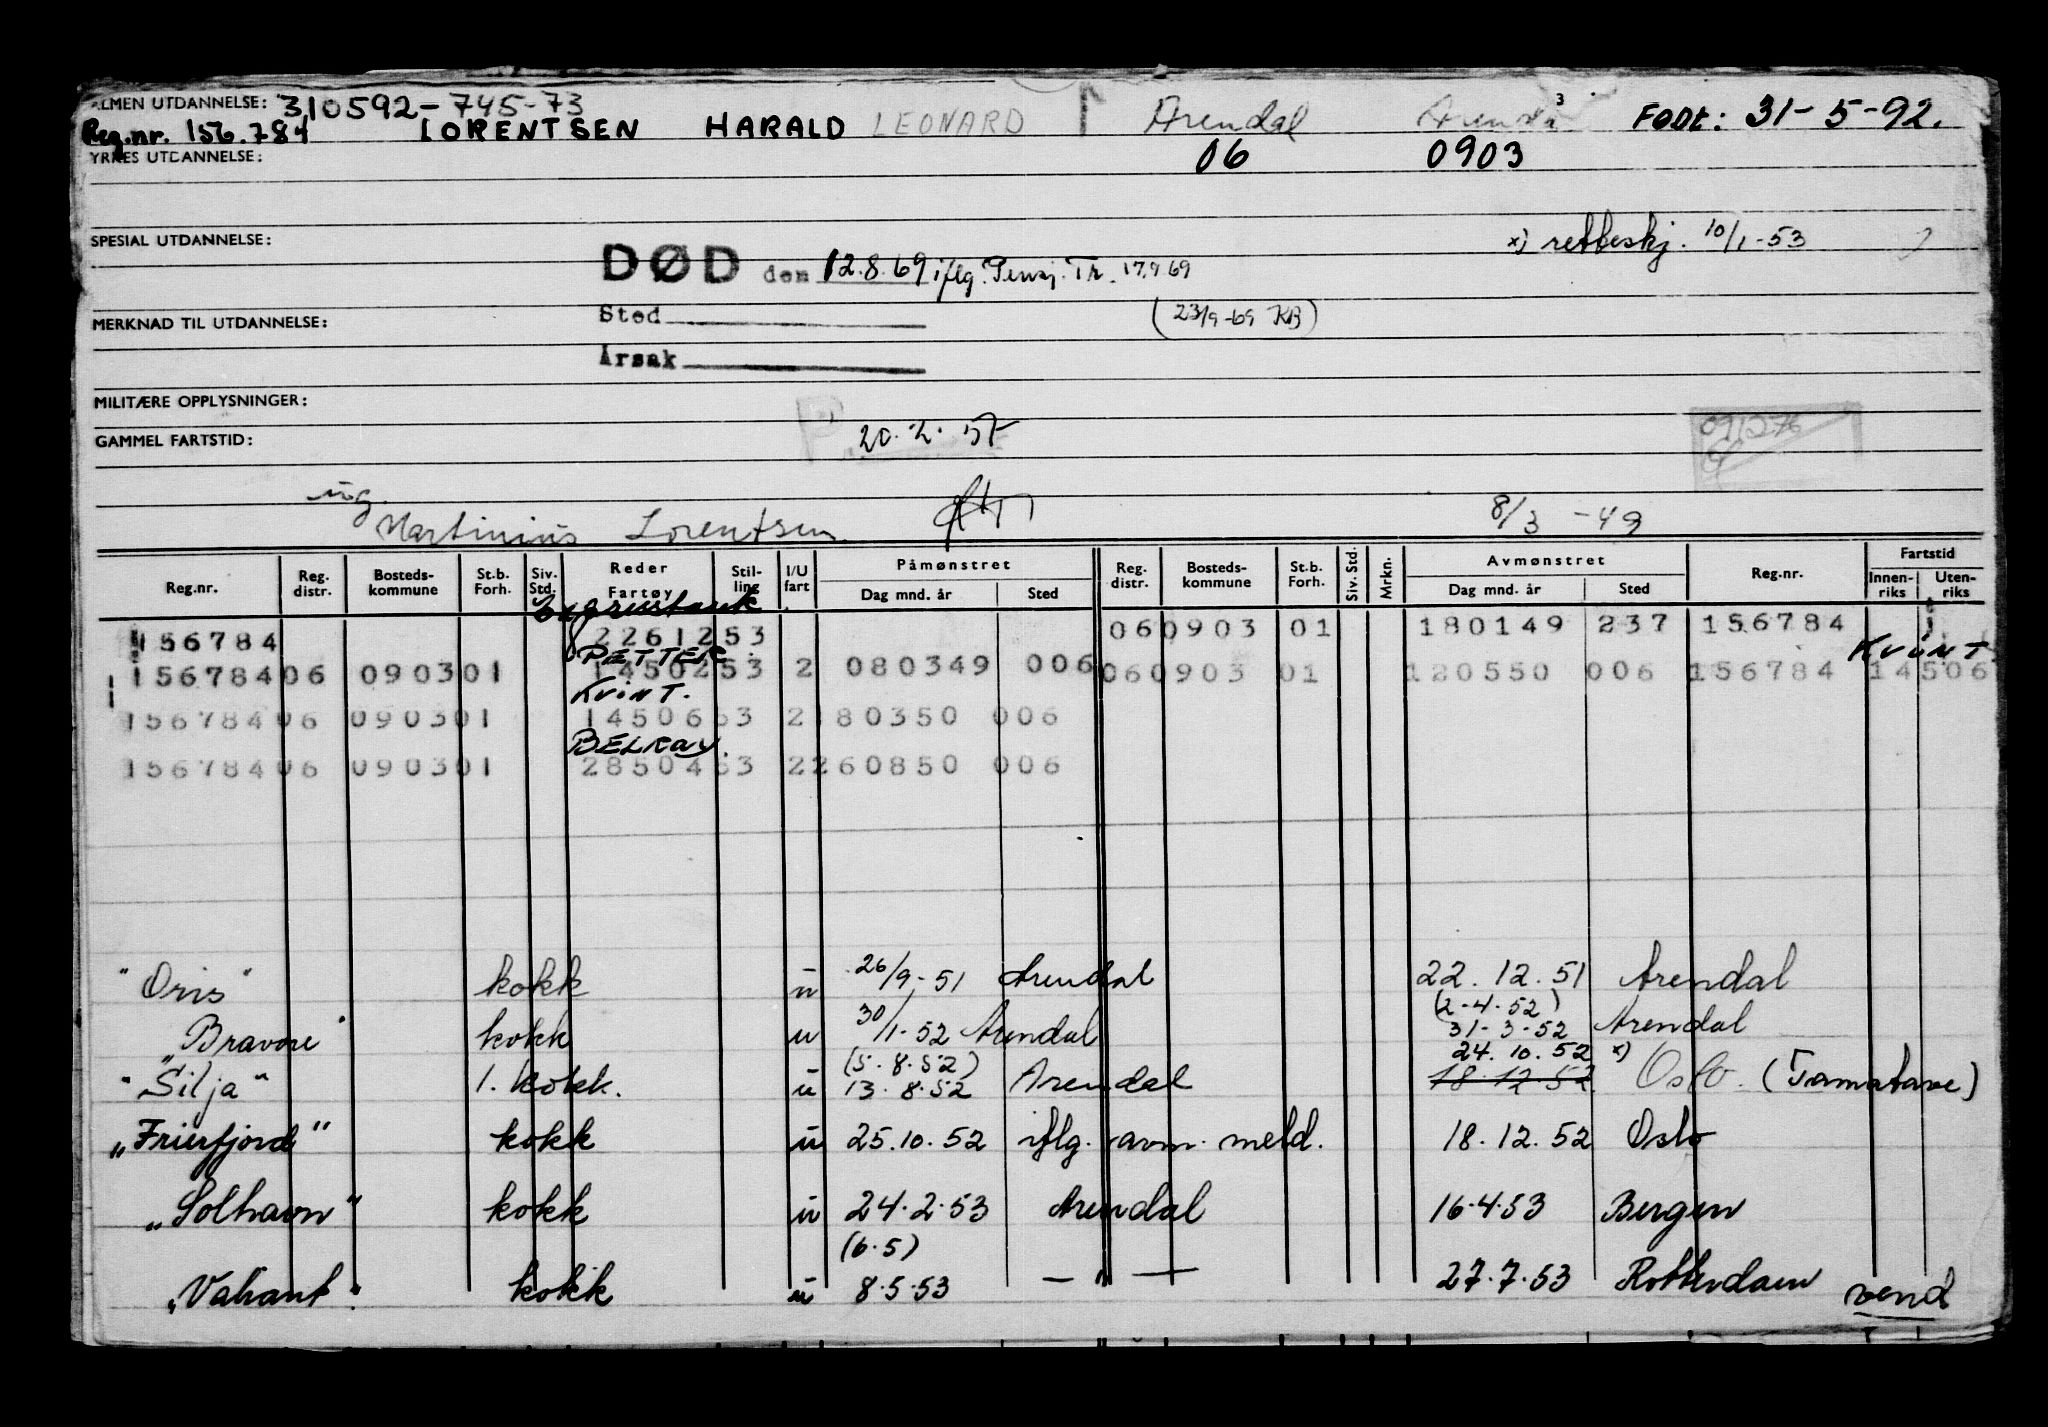 ALMEN UTDANNELSE: 310592-745-73
Reg.nr. 156.784 LORENTSEN HARALD LEONARD Arendal Arendal 3 FØDT: 31-5-92.
YRKES UTDANNELSE: 06 0903
SPESIAL UTDANNELSE: x) rettbeskj. 10/1-53
DØD den 12.8.69 iflg. Pensj. Tr. 17.9 69
MERKNAD TIL UTDANNELSE: Sted (23/9-69 KB)
Årsak
MILITÆRE OPPLYSNINGER:
GAMMEL FARTSTID: 20.2.57 091276
Martinius Lorentsen 8/3 -49
Reg.nr. Reg. distr. Bosteds-kommune St.b. Forh. Siv. Std. Reder Fartøy Stil-ling I/U fart Påmønstret Dag mnd. år Sted Reg. distr. Bosteds-kommune St.b. Forh. Siv. Std. Mrkn. Avmønstret Dag mnd. år Sted Reg.nr. Fartstid Innen-riks Uten-riks
156784 2261253 060903 01 180149 237 156784
PETTER. KVINT
156784 06 0903 01 1450253 2 080349 006 060903 01 120550 006 156784 14506
KVINT.
156784 06 0903 01 1450653 2 180350 006
BELRAY.
156784 06 0903 01 2850453 2 260850 006
"Oris" kokk u 26/9-51 Arendal 22.12.51 Arendal
(2-4-52)
"Bravore" kokk u 30/1-52 Arendal 31-3-52 Arendal
(5.8.52) 24.10.52 x)
"Silja" 1. kokk. u 13.8.52 Arendal 18.12.52 Oslo. (Tamatave)
"Frierfjord" kokk u 25.10.52 iflg. avm. meld. 18.12.52 Oslo
"Solhavn" kokk u 24.2.53 Arendal 16.4.53 Bergen
(6.5)
"Valiant". kokk u 8.5.53 — " — 27.7.53 Rotterdam vend